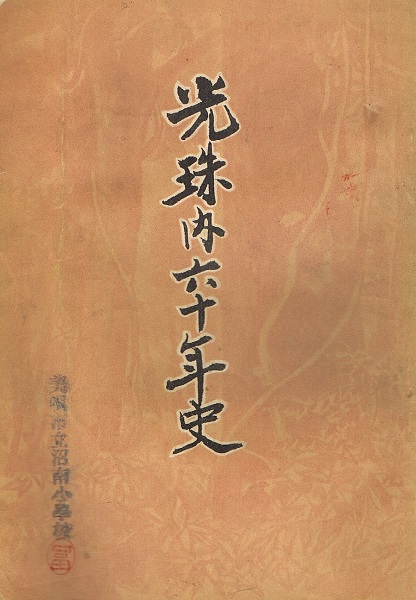 光珠内六十年史
美唄市立沼南小學校